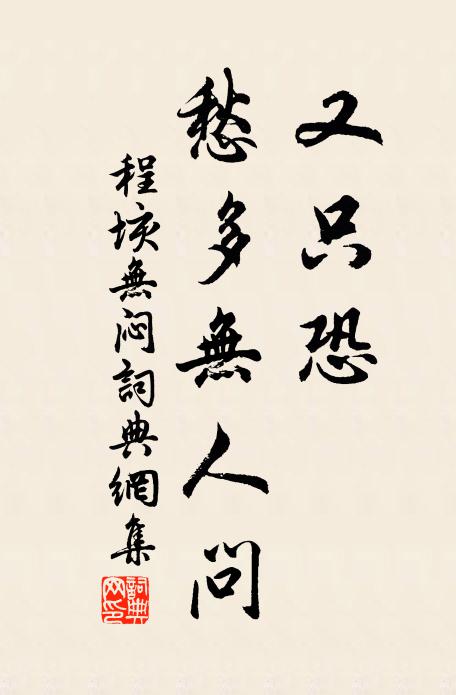 又只恐
愁多無人問
程垓無悶詞典網集
詞典網印